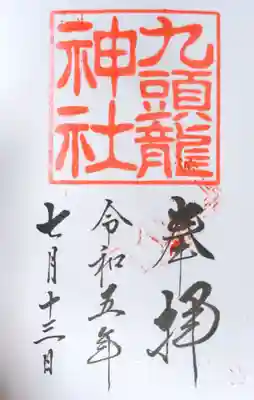 九頭龍
神社
奉拝
令和五年
七月十三日